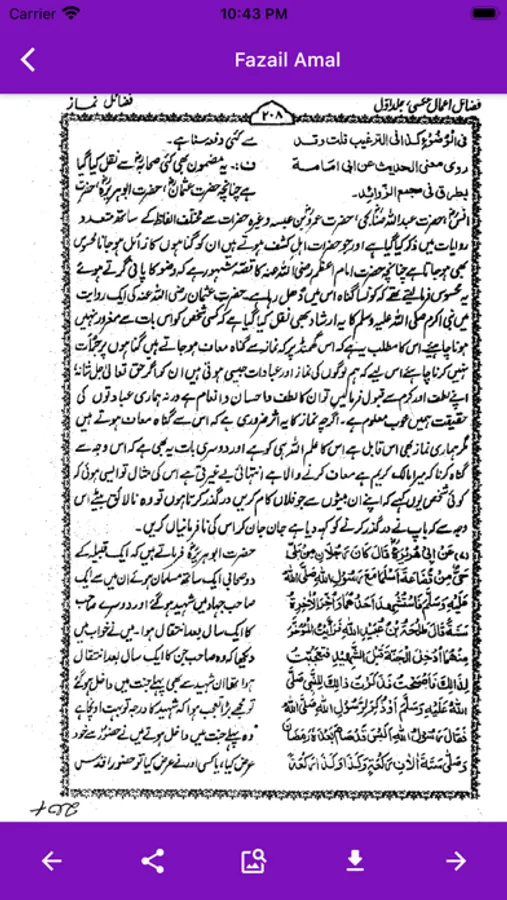 Carrier 10:43 PM
Fazail Amal
فضائل اعمال عکسی، جلد اول
۲۰۸
فضائل نماز
فی الوضوء کذا فی الترغیب قلت وقد
روی معنی الحدیث عن ابی امامة
بطرق فی مجمع الزوائد۔
سے کئی دفعہ سنا ہے۔
ف: یہ مضمون بھی کئی صحابہؓ سے نقل کیا گیا
ہے چنانچہ حضرت عثمانؓ، حضرت ابوہریرہؓ، حضرت
انسؓ، حضرت عبداللہ صنابحیؓ، حضرت عمرو بن عبسہ وغیرہ حضرات سے مختلف الفاظ کے ساتھ متعدد
روایات میں ذکر کیا گیا ہے اور جو حضرات اہل کشف ہوتے ہیں ان کو گناہوں کا زائل ہو جانا محسوس
بھی ہو جاتا ہے چنانچہ حضرت امام اعظم رضی اللہ عنہ کا قصہ مشہور ہے کہ وضو کا پانی گرتے ہوئے
یہ محسوس فرما لیتے تھے کہ کونسا گناہ اس میں دھل رہا ہے۔ حضرت عثمان رضی اللہ عنہ کی ایک روایت
میں نبی اکرم صلی اللہ علیہ وسلم کا یہ ارشاد بھی نقل کیا گیا ہے کہ کسی شخص کو اس بات سے مغرور نہیں
ہونا چاہئے اس کا مطلب یہ ہے کہ اس گھمنڈ پر کہ نماز سے گناہ معاف ہو جاتے ہیں گناہوں پر جرأت
نہیں کرنا چاہئے اس لیے کہ ہم لوگوں کی نماز اور عبادات جیسی ہوتی ہیں ان کو اگر حق تعالیٰ جل شانہٗ
اپنے لطف اور کرم سے قبول فرما لیں تو ان کا لطف و احسان و انعام ہے ورنہ ہماری عبادتوں کی
حقیقت ہمیں خوب معلوم ہے۔ اگرچہ نماز کا یہ اثر ضروری ہے کہ اس سے گناہ معاف ہوتے ہیں
مگر ہماری نماز بھی اس قابل ہے اس کا علم اللہ ہی کو ہے اور دوسری بات یہ بھی ہے کہ اس وجہ سے
گناہ کرنا کہ میرا مالک کریم ہے معاف کرنے والا ہے انتہائی بے غیرتی ہے اس کی مثال تو ایسی ہوئی کہ
کوئی شخص یوں کہے کہ اپنے ان بیٹوں سے جو فلاں کام کریں درگذر کرتا ہوں تو وہ نالائق بیٹے اس
وجہ سے کہ باپ نے درگذر کرنے کو کہہ دیا ہے جان جان کر اس کی نافرمانیاں کریں۔
(۷) عَنْ اَبِیْ هُرَیْرَةَ قَالَ کَانَ رَجُلَانِ مِنْ بَلِیٍّ
حَیٌّ مِّنْ قُضَاعَةَ اَسْلَمَا مَعَ رَسُوْلِ اللهِ صَلَّی اللهُ
عَلَیْهِ وَسَلَّمَ فَاسْتُشْهِدَ اَحَدُهُمَا وَاُخِّرَ الْاٰخَرُ
سَنَةً قَالَ طَلْحَةُ بْنُ عُبَیْدِ اللهِ فَرَاَیْتُ الْمُؤَخَّرَ
مِنْهُمَا اُدْخِلَ الْجَنَّةَ قَبْلَ الشَّهِیْدِ فَتَعَجَّبْتُ
لِذٰلِکَ فَاَصْبَحْتُ فَذَکَرْتُ ذٰلِکَ لِلنَّبِیِّ صَلَّی
اللهُ عَلَیْهِ وَسَلَّمَ اَوْ ذُکِرَ لِرَسُوْلِ اللهِ صَلَّی اللهُ
فَقَالَ رَسُوْلُ اللهِ اَلَیْسَ قَدْ صَامَ بَعْدَهٗ رَمَضَانَ
وَصَلّٰی سِتَّةَ اٰلَافِ رَکْعَةٍ وَکَذَا وَکَذَا رَکْعَةً
حضرت ابوہریرہؓ فرماتے ہیں کہ ایک قبیلہ کے
دو صحابی ایک ساتھ مسلمان ہوئے ان میں سے ایک
صاحب جہاد میں شہید ہو گئے اور دوسرے صاحب
کا ایک سال بعد انتقال ہوا۔ میں نے خواب میں
دیکھا کہ وہ صاحب جن کا ایک سال بعد انتقال
ہوا تھا ان شہید سے بھی پہلے جنت میں داخل ہو گئے
تو مجھے بڑا تعجب ہوا کہ شہید کا درجہ تو بہت اونچا ہے
وہ پہلے جنت میں داخل ہوتے میں نے حضورؐ سے خود
عرض کیا، یا کسی اور نے عرض کیا تو حضور اقدس